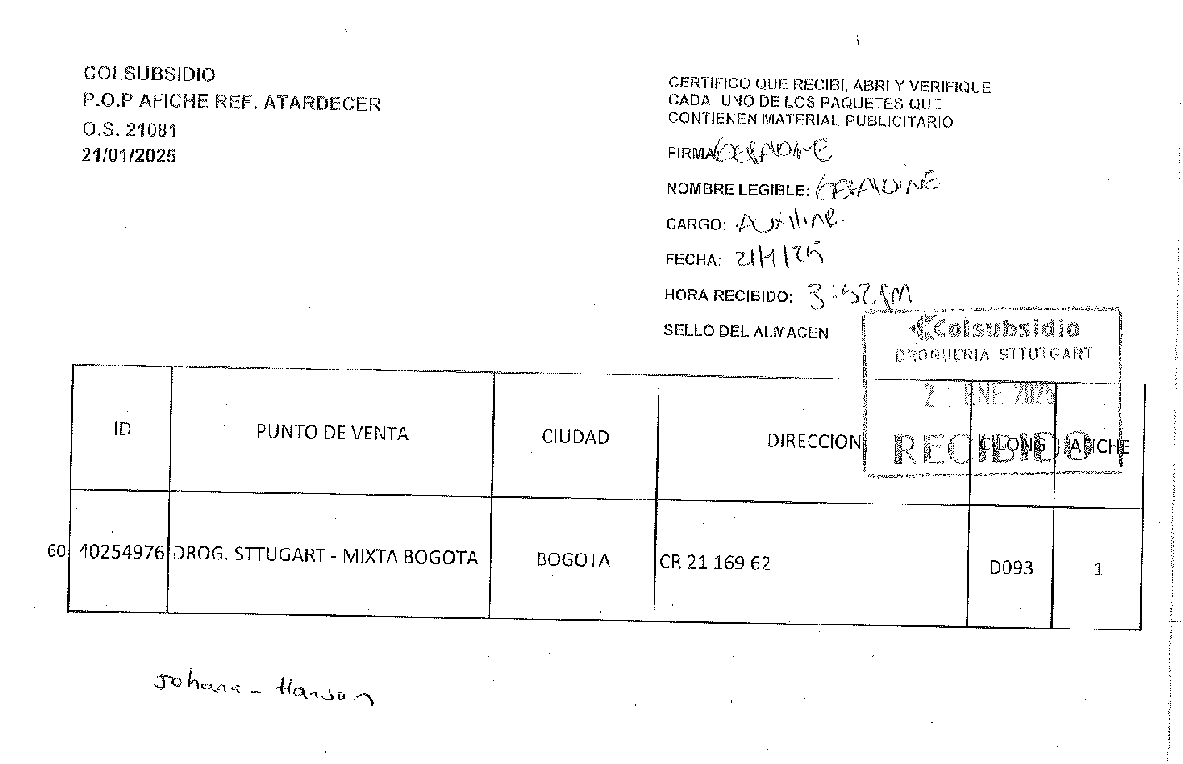 COLSUBSIDIO
P.O.P AFICHE REF. ATARDECER
O.S. 21081
21/01/2025
CERTIFICO QUE RECIBI, ABRI Y VERIFIQUE
CADA UNO DE LOS PAQUETES QUE
CONTIENEN MATERIAL PUBLICITARIO
FIRMA:
NOMBRE LEGIBLE:
CARGO:
FECHA: 21/1/25
HORA RECIBIDO: 3:52 PM
SELLO DEL ALMACEN
Colsubsidio
DROGUERIA STTUTGART
2 ENE 2025
RECIBIDO
ID PUNTO DE VENTA CIUDAD DIRECCION AFICHE
60 10254976 DROG. STTUGART - MIXTA BOGOTA BOGOTA CR 21 169 62 D093 1
Johana - Hanson